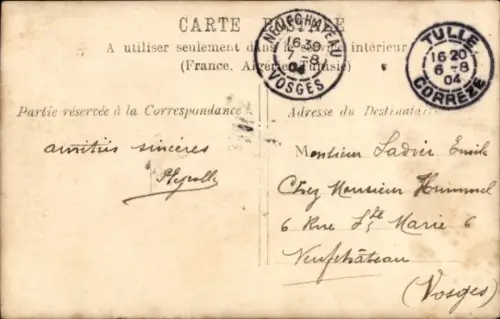 CARTE POSTALE
A utiliser seulement dans le service intérieur
(France, Algérie, Tunisie)
NEUFCHATEAU
16 30
7 -8
04
VOSGES
TULLE
16 20
6 -8
04
CORRÈZE
Partie réservée à la Correspondance
Adresse du Destinataire
amitiés sincères
Monsieur Ladier Emile
Chez Monsieur Hummel
6 Rue Ste Marie 6
Neufchâteau
(Vosges)